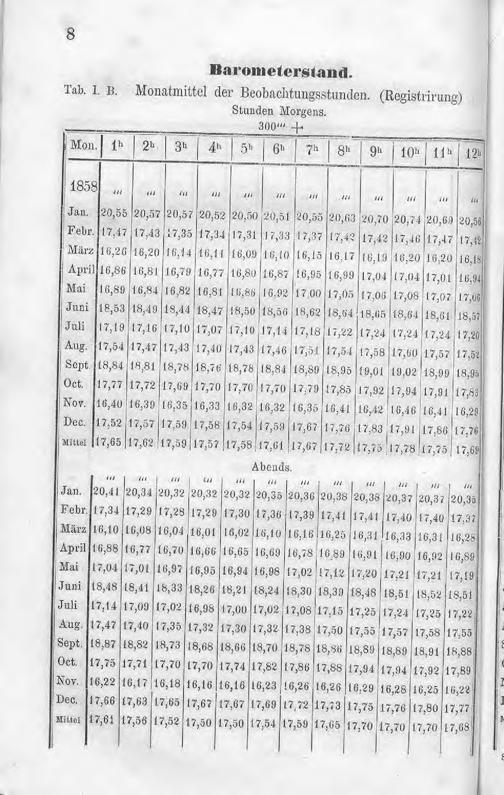 8
Barometerstand.
Tab. I. B. Monatmittel der Beobachtungsstunden. (Registrirung)
Stunden Morgens.
300''' +
Mon. 1h 2h 3h 4h 5h 6h 7h 8h 9h 10h 11h 12h
1858 ''' ''' ''' ''' ''' ''' ''' ''' ''' ''' ''' '''
Jan. 20,55 20,57 20,57 20,52 20,50 20,51 20,55 20,63 20,70 20,74 20,69 20,56
Febr. 17,47 17,43 17,35 17,34 17,31 17,33 17,37 17,42 17,42 17,46 17,47 17,42
März 16,26 16,20 16,14 16,11 16,09 16,10 16,15 16,17 16,19 16,20 16,20 16,18
April 16,86 16,81 16,79 16,77 16,80 16,87 16,95 16,99 17,04 17,04 17,01 16,94
Mai 16,89 16,84 16,82 16,81 16,86 16,92 17,00 17,05 17,06 17,08 17,07 17,06
Juni 18,53 18,49 18,44 18,47 18,50 18,56 18,62 18,64 18,65 18,64 18,61 18,57
Juli 17,19 17,16 17,10 17,07 17,10 17,14 17,18 17,22 17,24 17,24 17,24 17,20
Aug. 17,54 17,47 17,43 17,40 17,43 17,46 17,51 17,54 17,58 17,60 17,57 17,52
Sept. 18,84 18,81 18,78 18,76 18,78 18,84 18,89 18,95 19,01 19,02 18,99 18,95
Oct. 17,77 17,72 17,69 17,70 17,70 17,70 17,79 17,85 17,92 17,94 17,91 17,83
Nov. 16,40 16,39 16,35 16,33 16,32 16,32 16,35 16,41 16,42 16,46 16,41 16,29
Dec. 17,52 17,57 17,59 17,58 17,54 17,59 17,67 17,76 17,83 17,91 17,86 17,76
Mittel 17,65 17,62 17,59 17,57 17,58 17,61 17,67 17,72 17,75 17,78 17,75 17,69
Abends.
''' ''' ''' ''' ''' ''' ''' ''' ''' ''' ''' '''
Jan. 20,41 20,34 20,32 20,32 20,32 20,35 20,36 20,38 20,38 20,37 20,37 20,35
Febr. 17,34 17,29 17,28 17,29 17,30 17,36 17,39 17,41 17,41 17,40 17,40 17,37
März 16,10 16,08 16,04 16,01 16,02 16,10 16,16 16,25 16,31 16,33 16,31 16,28
April 16,88 16,77 16,70 16,66 16,65 16,69 16,78 16,89 16,91 16,90 16,92 16,89
Mai 17,04 17,01 16,97 16,95 16,94 16,98 17,02 17,12 17,20 17,21 17,21 17,19
Juni 18,48 18,41 18,33 18,26 18,21 18,24 18,30 18,39 18,48 18,51 18,52 18,51
Juli 17,14 17,09 17,02 16,98 17,00 17,02 17,08 17,15 17,25 17,24 17,25 17,22
Aug. 17,47 17,40 17,35 17,32 17,30 17,32 17,38 17,50 17,55 17,57 17,58 17,55
Sept. 18,87 18,82 18,73 18,68 18,66 18,70 18,78 18,86 18,89 18,89 18,91 18,88
Oct. 17,75 17,71 17,70 17,70 17,74 17,82 17,86 17,88 17,94 17,94 17,92 17,89
Nov. 16,22 16,17 16,18 16,16 16,16 16,23 16,26 16,26 16,29 16,28 16,25 16,22
Dec. 17,66 17,63 17,65 17,67 17,67 17,69 17,72 17,73 17,75 17,76 17,80 17,77
Mittel 17,61 17,56 17,52 17,50 17,50 17,54 17,59 17,65 17,70 17,70 17,70 17,68